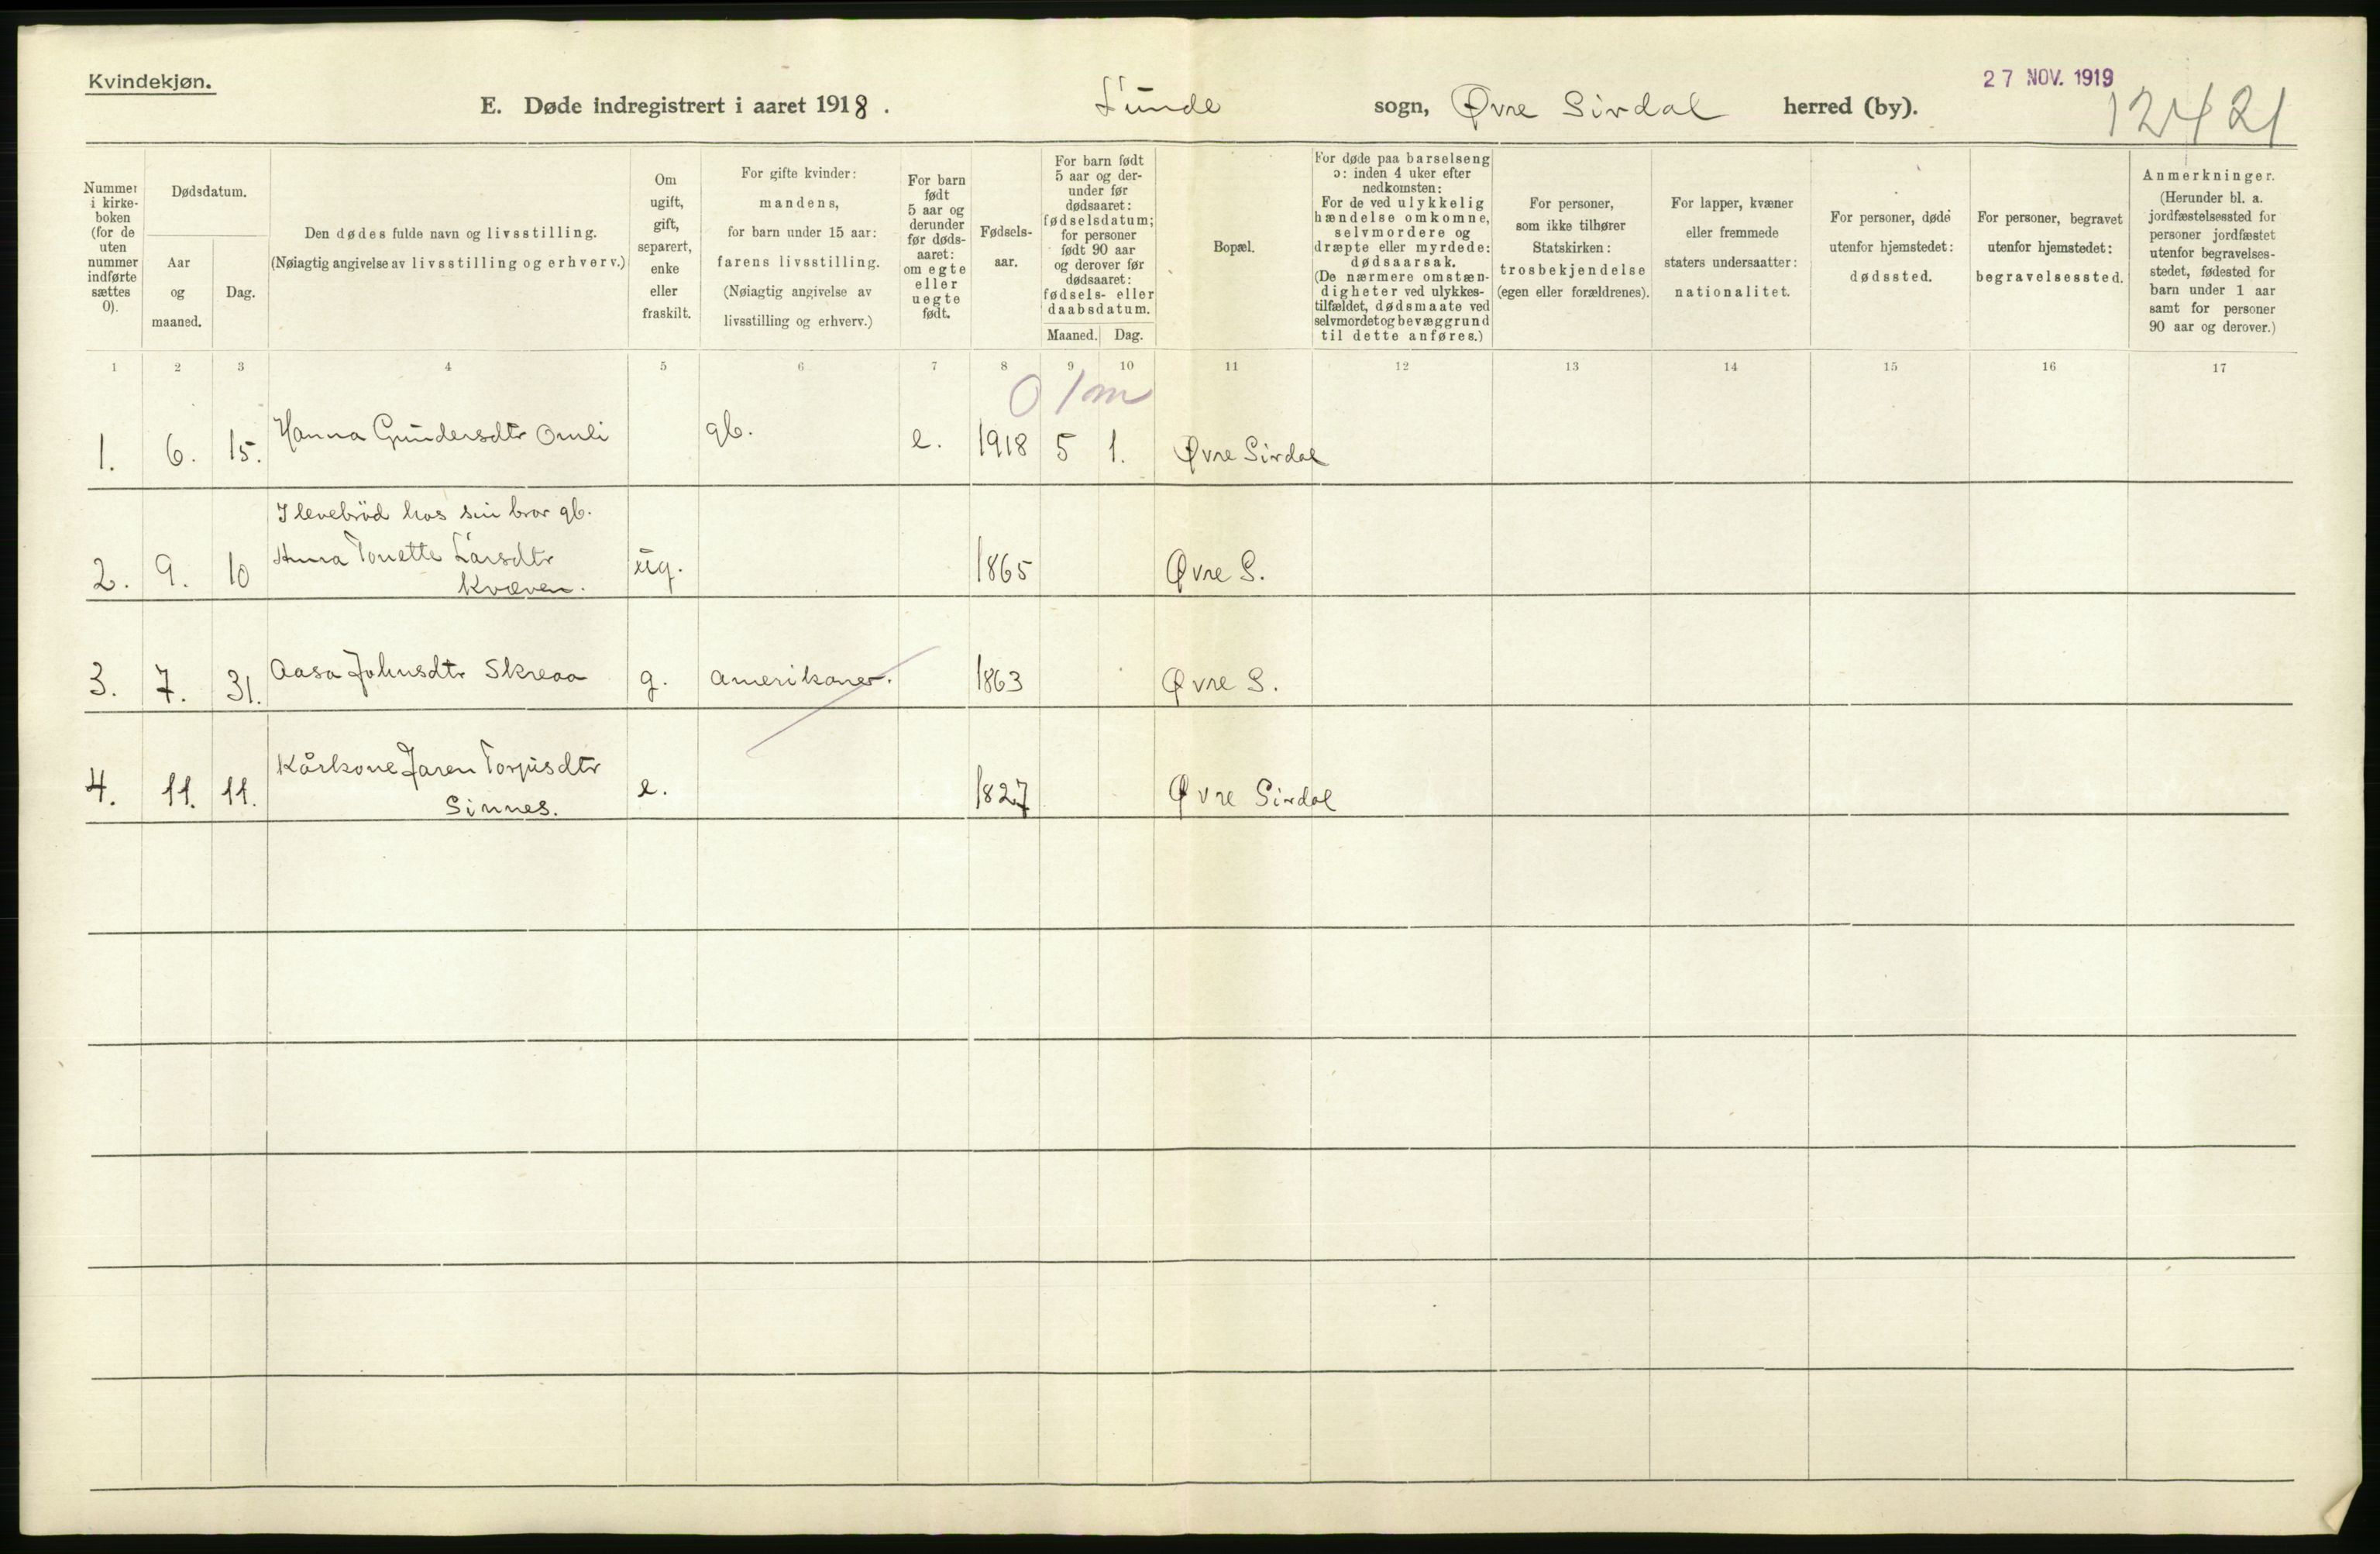 Kvindekjøn.
E. Døde indregistrert i aaret 1918. Lunde sogn, Øvre Sirdal herred (by).
27 NOV. 1919
12421
Nummer i kirkeboken (for de uten nummer indførte sættes 0).
Dødsdatum.
Aar og maaned.
Dag.
Den dødes fulde navn og livsstilling.
(Nøiagtig angivelse av livsstilling og erhverv.)
Om ugift, gift, separert, enke eller fraskilt.
For gifte kvinder: mandens, for barn under 15 aar: farens livsstilling. (Nøiagtig angivelse av livsstilling og erhverv.)
For barn født 5 aar og derunder før dødsaaret: om egte eller uegte født.
Fødselsaar.
For barn født 5 aar og derunder før dødsaaret: fødselsdatum; for personer født 90 aar og derover før dødsaaret: fødsels- eller daabsdatum.
Maaned. Dag.
Bopæl.
For døde paa barselseng ɔ: inden 4 uker efter nedkomsten: For de ved ulykkelig hændelse omkomne, selvmordere og dræpte eller myrdede: dødsaarsak. (De nærmere omstændigheter ved ulykkestilfældet, dødsmaate ved selvmordet og bevæggrund til dette anføres.)
For personer, som ikke tilhører Statskirken: trosbekjendelse (egen eller forældrenes).
For lapper, kvæner eller fremmede staters undersaatter: nationalitet.
For personer, døde utenfor hjemstedet: dødssted.
For personer, begravet utenfor hjemstedet: begravelsessted.
Anmerkninger. (Herunder bl. a. jordfæstelsessted for personer jordfæstet utenfor begravelsesstedet, fødested for barn under 1 aar samt for personer 90 aar og derover.)
1 2 3 4 5 6 7 8 9 10 11 12 13 14 15 16 17
0 1m
1. 6. 15. Hanna Gundersdtr Omli gb. e. 1918 5 1. Øvre Sirdal
I levebröd hos sin bror gb.
2. 9. 10 Anna Tonette Larsdtr ug. 1865 Øvre S.
Kvæven.
3. 7. 31. Aasa Johnsdtr Skreaa g. amerikaner. 1863 Øvre S.
4. 11. 11. Kårkone Jaren Torjusdtr e. 1827 Øvre Sirdal
Sinnes.